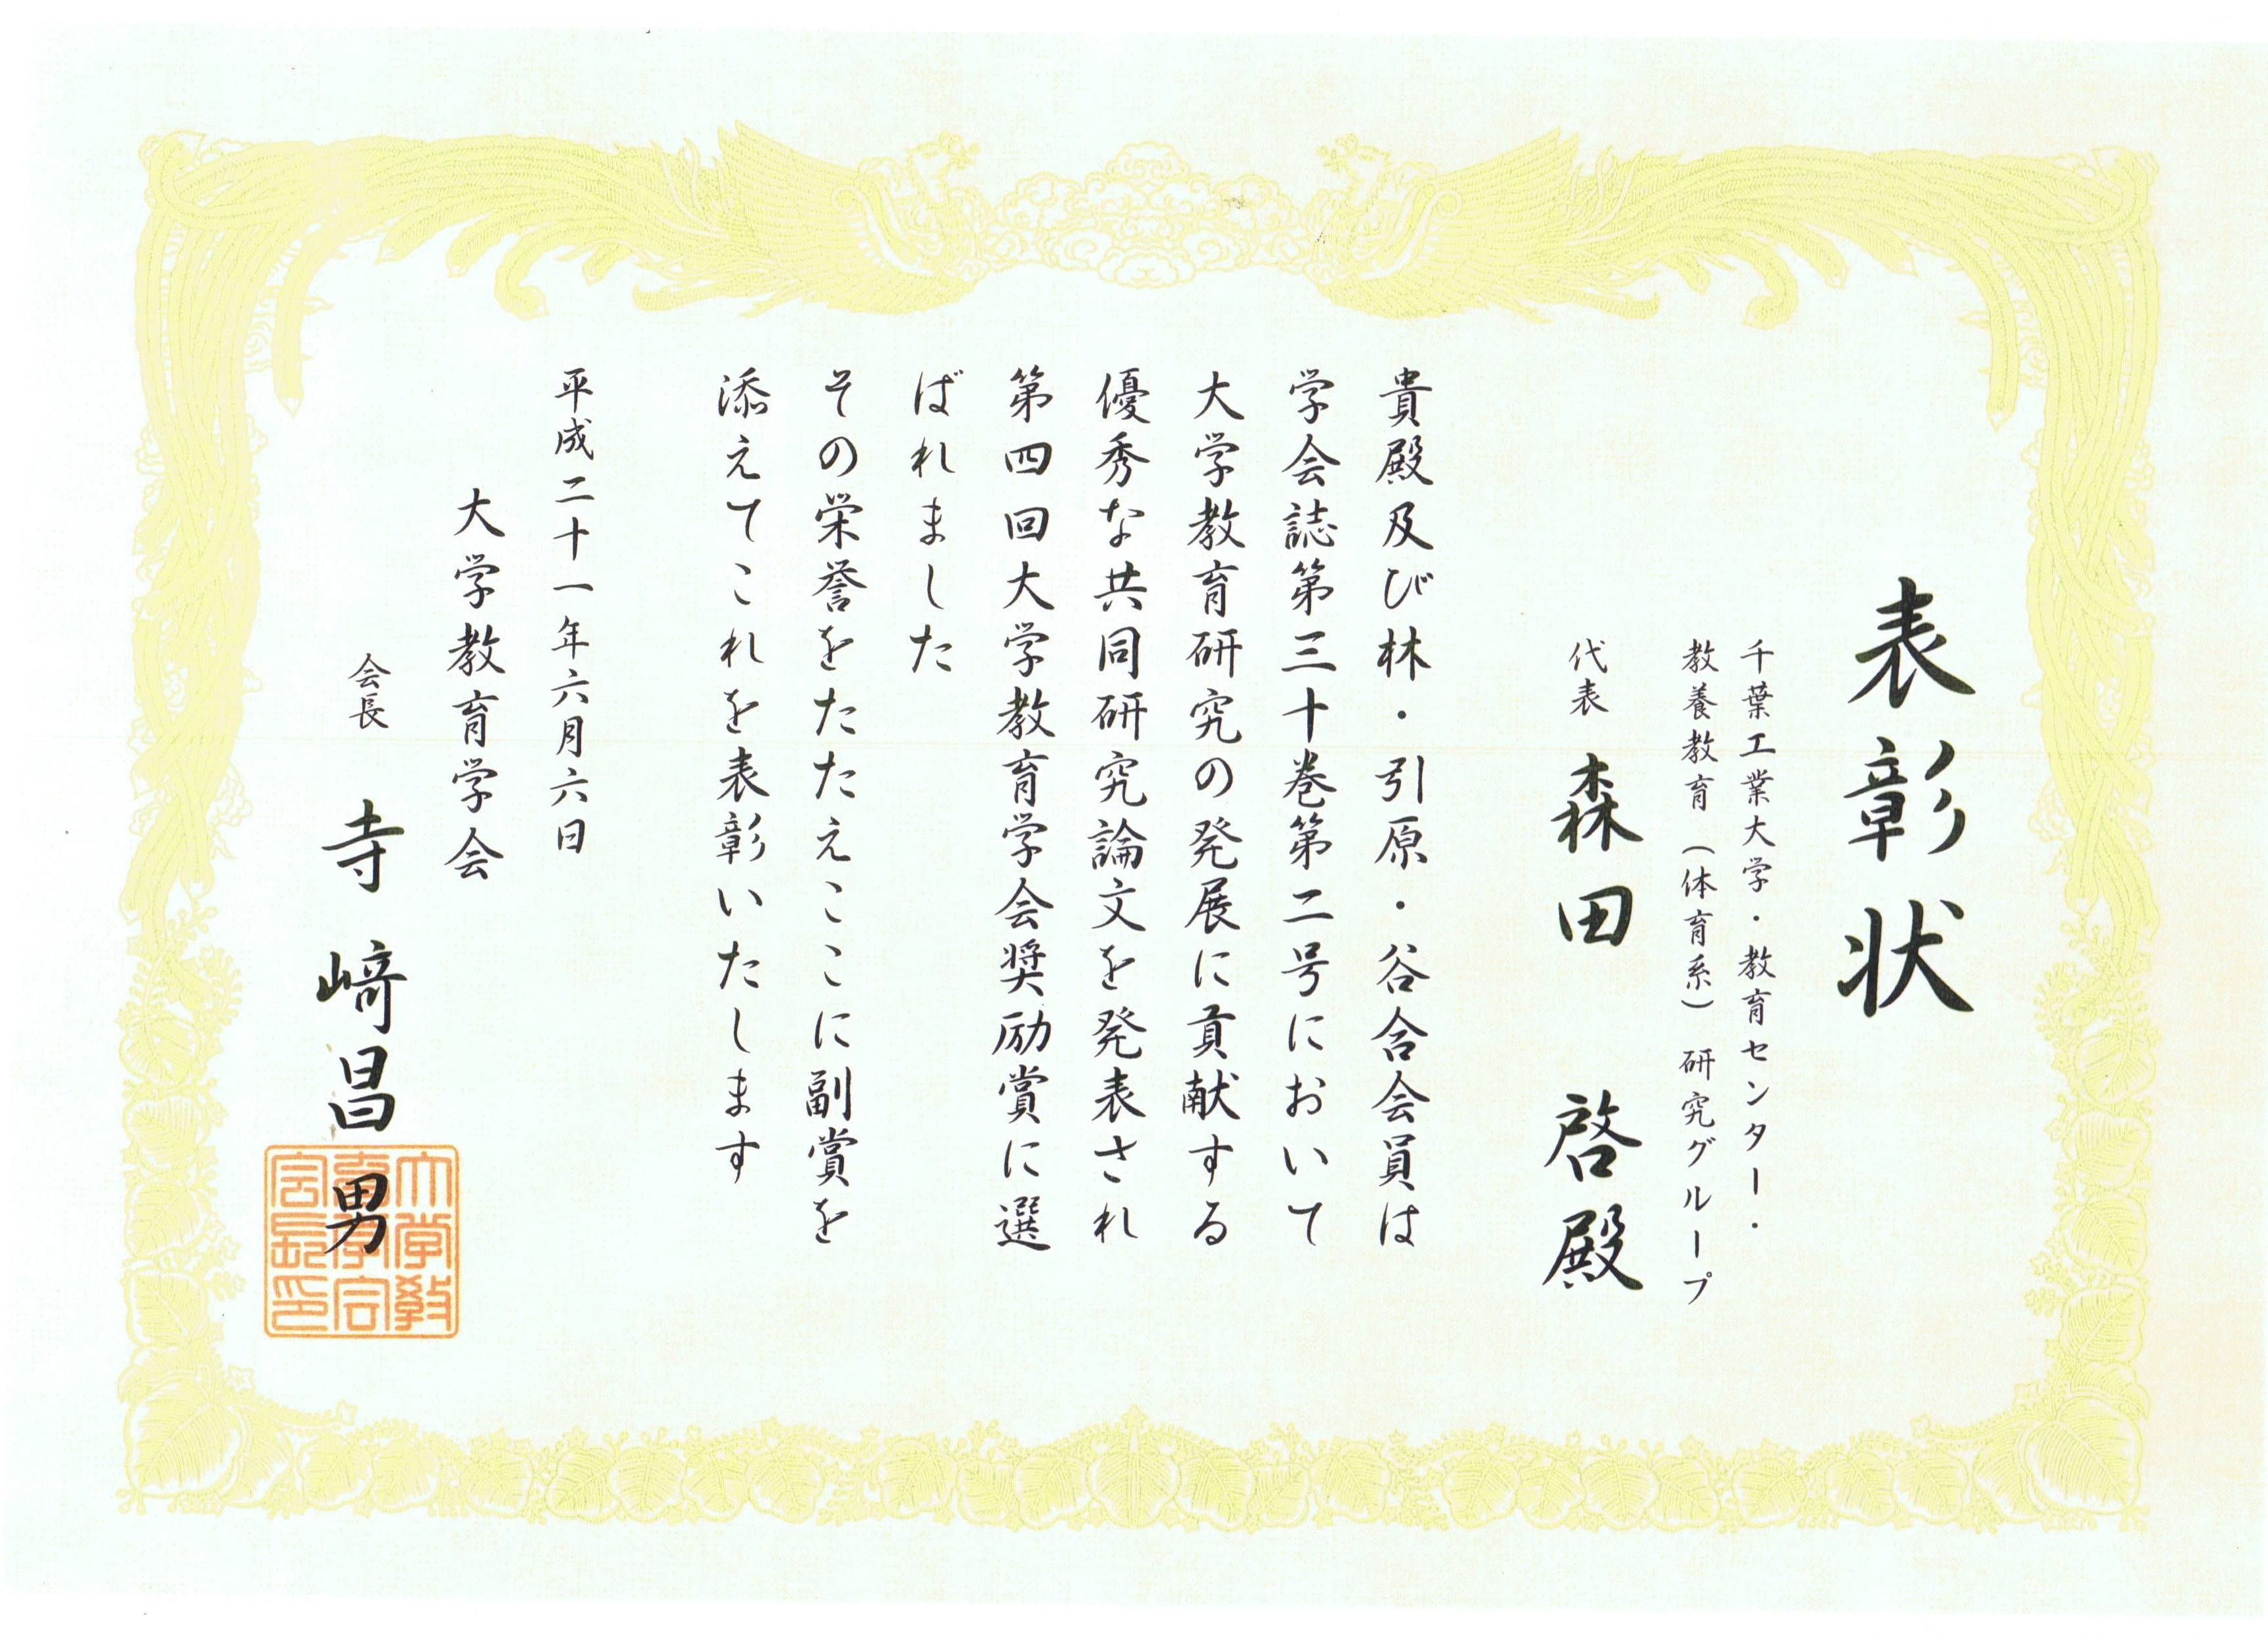 表彰状
千葉工業大学・教育センター・
教養教育（体育系）研究グループ
代表 森田 啓殿
貴殿及び林・引原・谷合会員は
学会誌第三十巻第二号において
大学教育研究の発展に貢献する
優秀な共同研究論文を発表され
第四回大学教育学会奨励賞に選
ばれました
その栄誉をたたえここに副賞を
添えてこれを表彰いたします
平成二十一年六月六日
大学教育学会
会長 寺﨑昌男
大学教
育学会
会長印